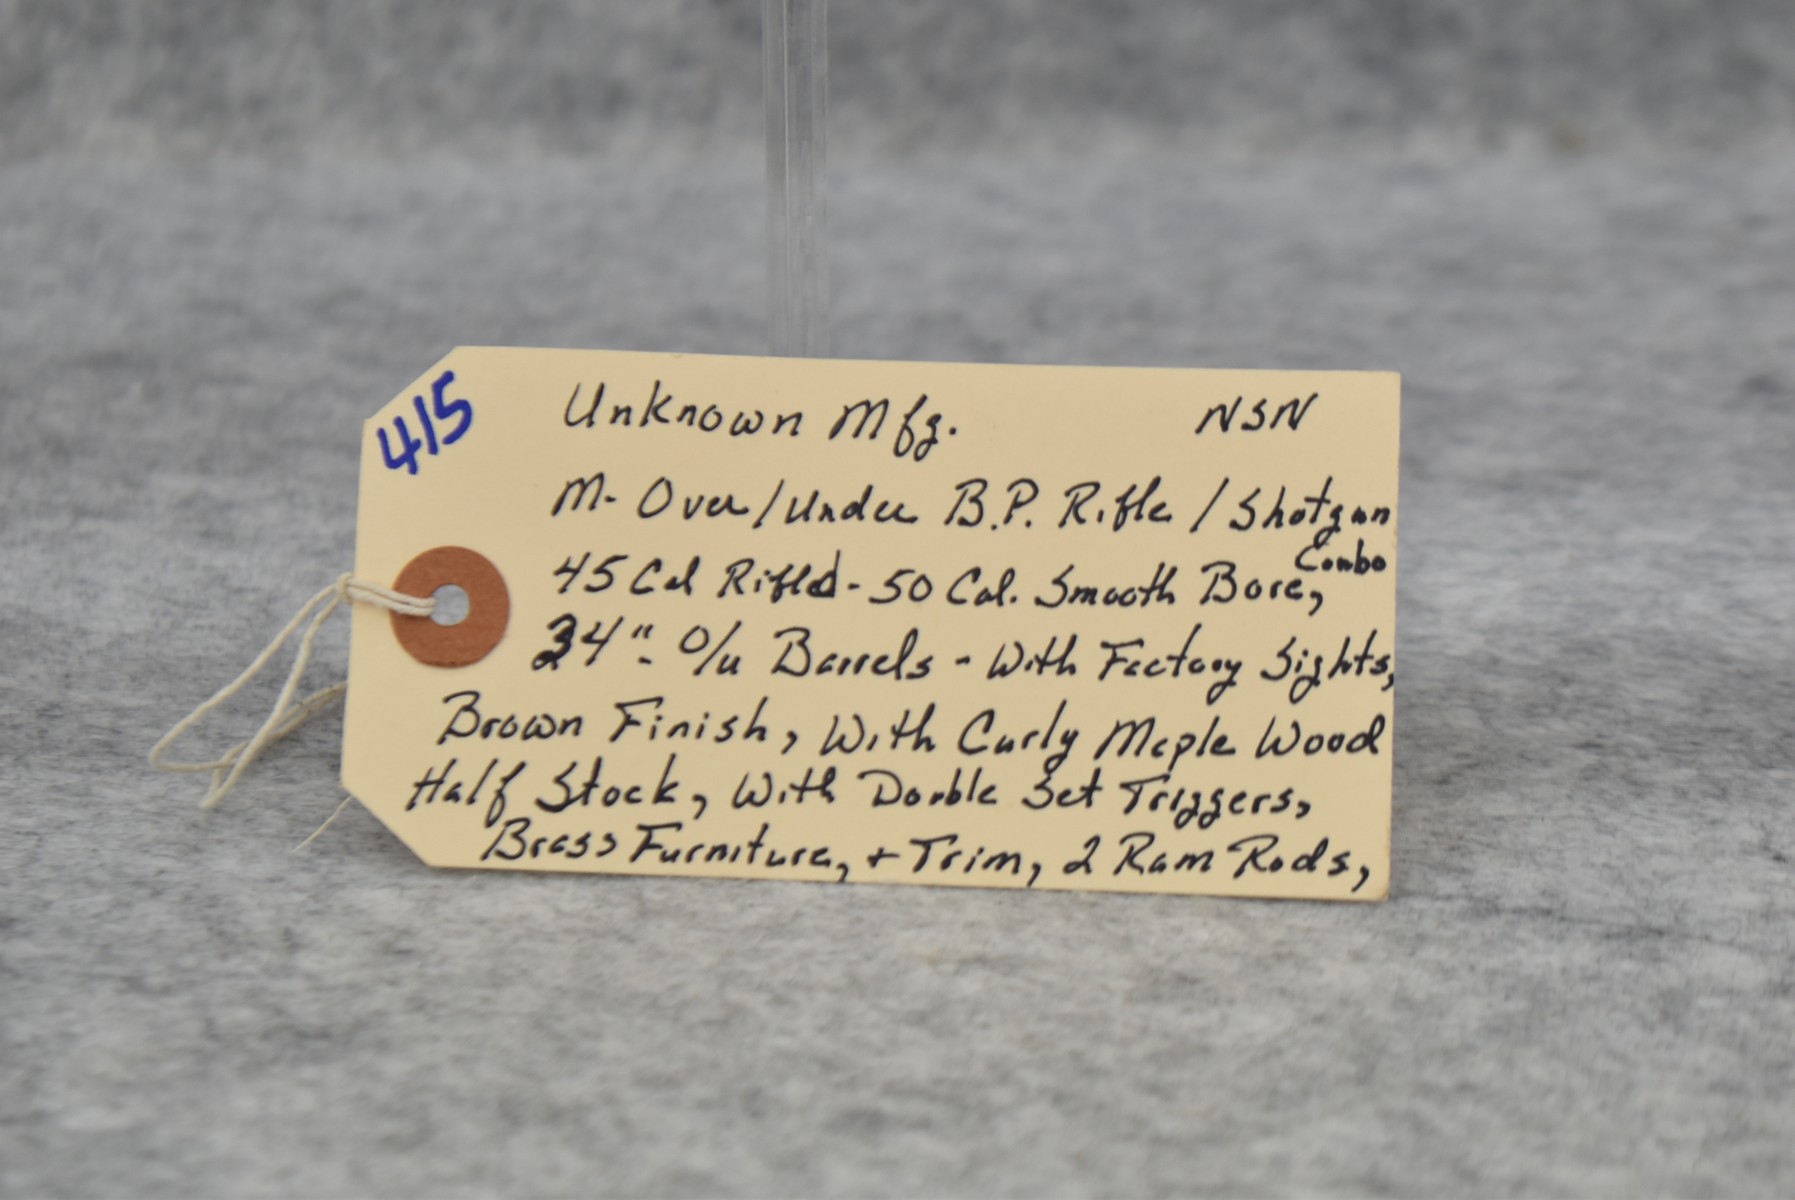 415
Unknown Mfg. NSN
M- Over/Under B.P. Rifle / Shotgun
Combo
45 Cal Rifled - 50 Cal. Smooth Bore,
34" - O/u Barrels - With Factory Sights,
Brown Finish, With Curly Maple Wood
Half Stock, With Double Set Triggers,
Brass Furniture, + Trim, 2 Ram Rods,